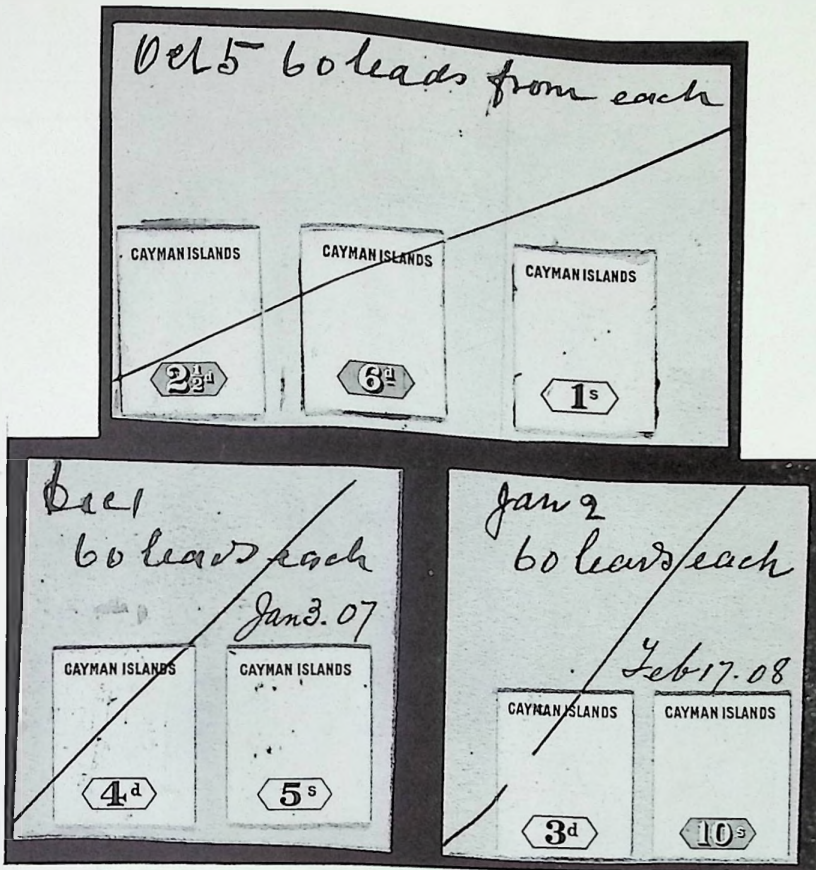 Oct 5 60 leads from each
CAYMAN ISLANDS CAYMAN ISLANDS CAYMAN ISLANDS
2½d 6d 1s
Dec 1
60 leads each
Jan 3. 07
CAYMAN ISLANDS CAYMAN ISLANDS
4d 5s
Jan 2
60 leads each
Feb 17. 08
CAYMAN ISLANDS CAYMAN ISLANDS
3d 10s